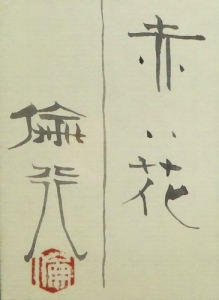 赤い花
倫